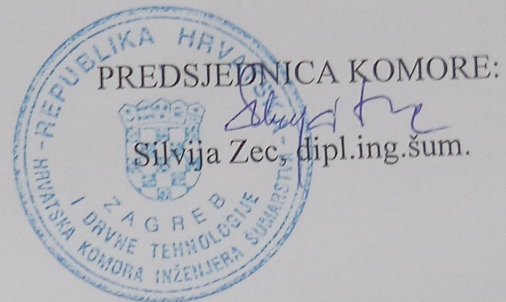 PREDSJEDNICA KOMORE:
Silvija Zec, dipl.ing.šum.
REPUBLIKA HRVATSKA
HRVATSKA KOMORA INŽENJERA ŠUMARSTVA
I DRVNE TEHNOLOGIJE
ZAGREB